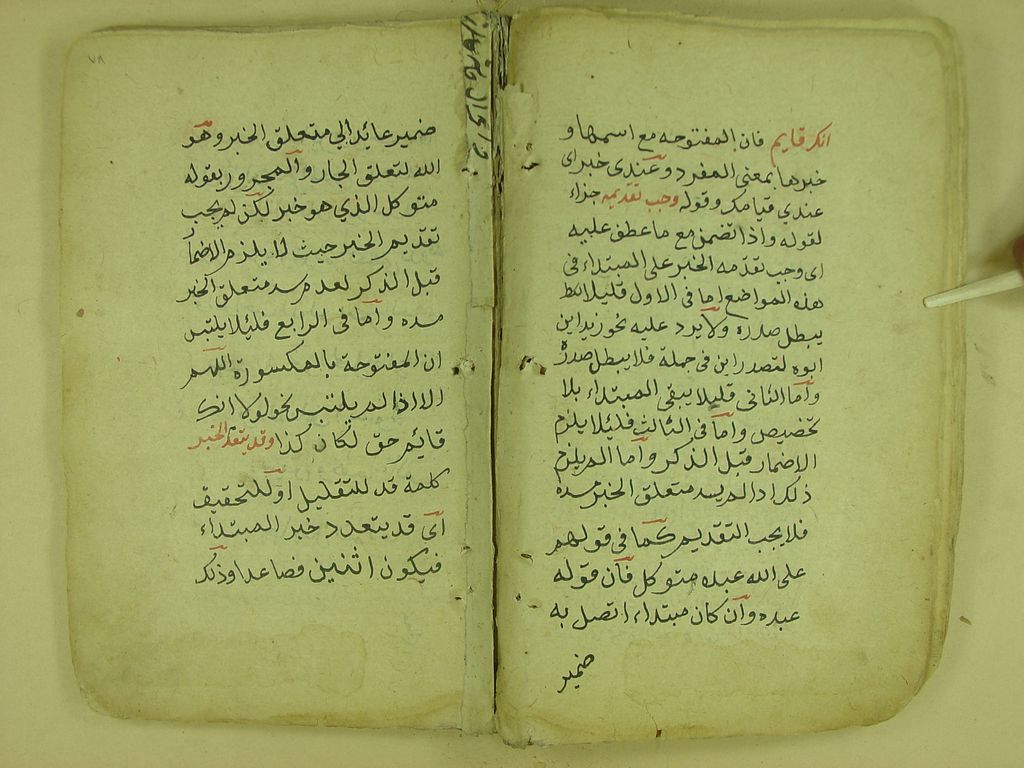 انك قايم فان المفتوحه مع اسمها و
خبرها بمعنى المفرد وعندى خبراى
عندي قيامك وقوله وجب تقديمه جزاء
لقوله واذا تضمن مع ما عطق عليه
اى وجب تقدمه الخبر على المبتداء فى
هذه المواضع اما فى الاول فليلا
يبطل صدره ولا يرد عليه نحو زيد اين
ابوه لتصدر اين فى جملة فلا يبطل صدره
واما الثانى فليلا يبقى المبتداء بلا
تخصيص واما فى الثالث فليلا يلزم
الاضمار قبل الذكر واما لم يلزم
ذلك اذا لم يسد متعلق الخبر مسده
فلا يجب التقديم كما فى قولهم
على الله عبده متوكل فان قوله
عبده وان كان مبتداء اتصل به
ضمير
٧٨
ضمير عايد الي متعلق الخبر وهو
الله لتعلق الجار والمجرور بقوله
متوكل الذي هو خبر لكن لم يجب
تقديم الخبر حيث لا يلزم الاضما
قبل الذكر لعدم سد متعلق الخبر
مسده واما فى الرابع فليلا يلتبس
ان المفتوحة بالمكسورة اللهم
الا اذا لم يلتبس نحو لولا انك
قايم حق لكان كذا وقد يتعدد الخبر
كلمة قد للتقليل او للتحقيق
اى قد يتعدد خبر المبتداء
فيكون اثنين فصاعدا وذلك